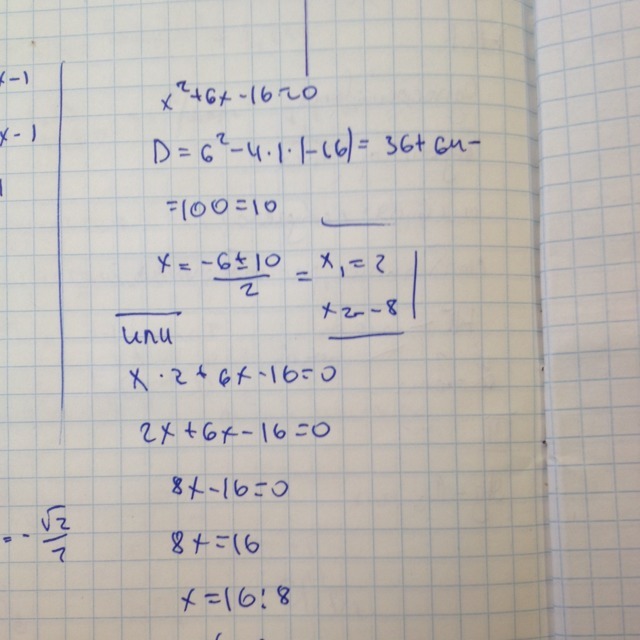 x-1
x-1
1
x²+6x-16=0
D=6²-4·1·(-16)=36+64=
=100=10
x=(-6±10)/2=x₁=2
x₂=-8
или
x·2+6x-16=0
2x+6x-16=0
8x-16=0
=-√2/2
8x=16
x=16:8